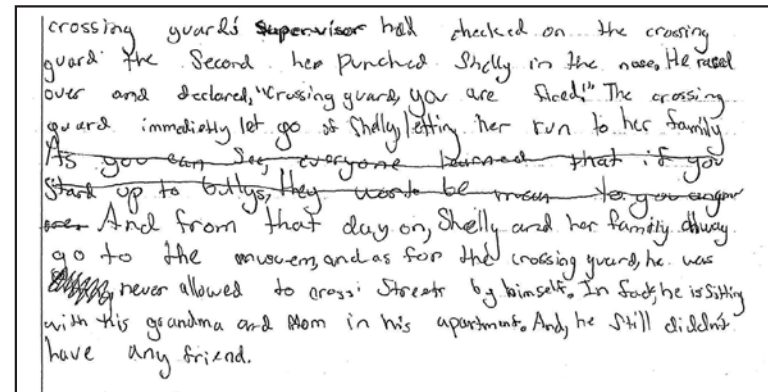 crossing guard's supervisor had checked on the crossing
guard the Second her punched Shelly in the nose. He raced
over and declared, "Crossing guard, you are fired!" The crossing
guard immedietly let go of Shelly, letting her run to her family
As you can see, everyone learned that if you
stand up to bullys, they won't be mean to you anymore
And from that day on, Shelly and her family alway
go to the musuem, and as for the crossing guard, he was
never allowed to cross Streets by himself. In fact, he is Sitting
with his grandma and Mom in his apartment. And, he Still didn't
have any friend.